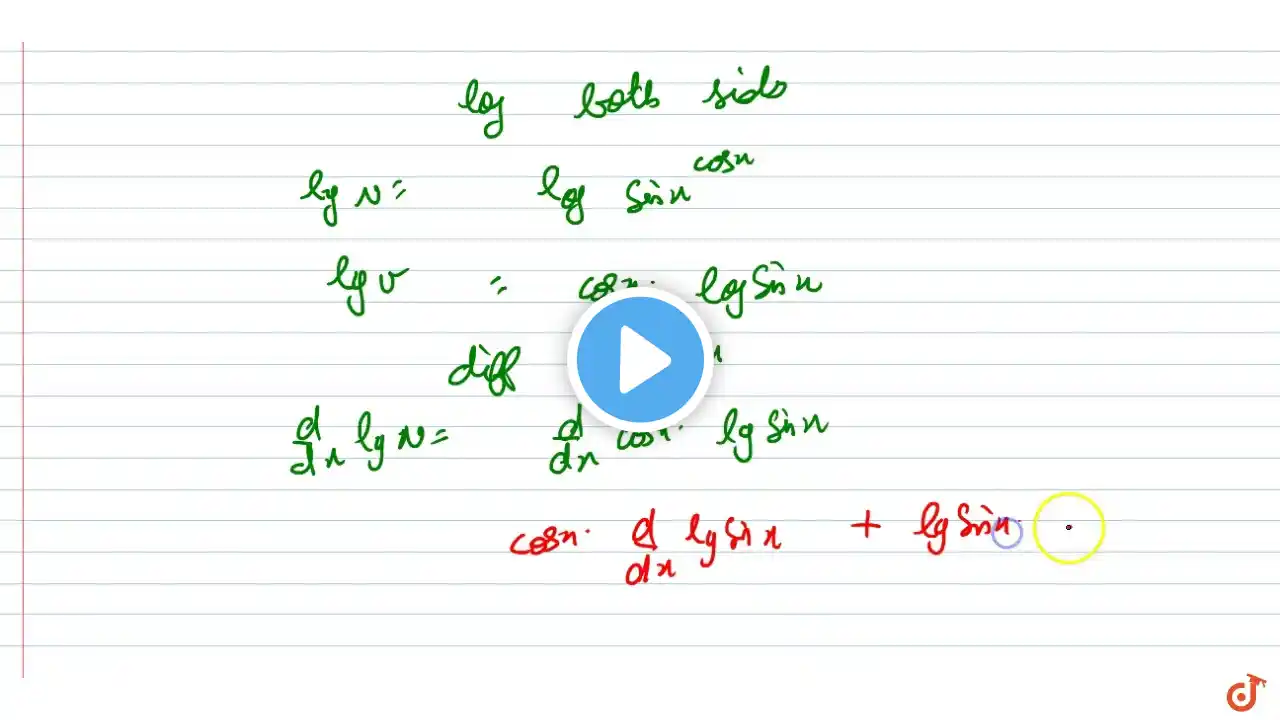 log both sides
log v = log sinx^cosx
log v = cosx. log sinx
diff x
d/dx log v = d/dx cosx. log sinx
cosx. d/dx log sinx + log sinx.